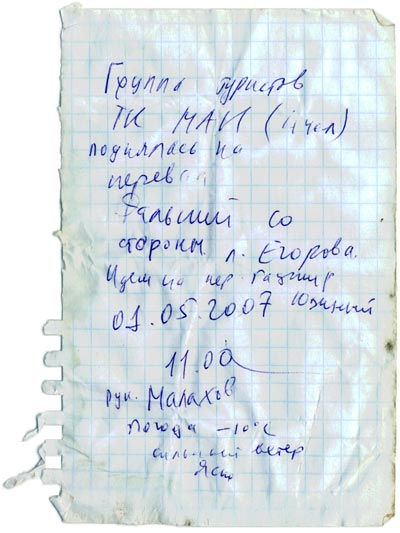 Группа туристов
ТК МАИ (4 чел)
поднялась на
перевал
Фальший со
стороны л. Егорова.
Идем на пер.
Южный
01.05.2007
11.00
рук. Малахов
погода -10°C
сильный ветер
Ясно